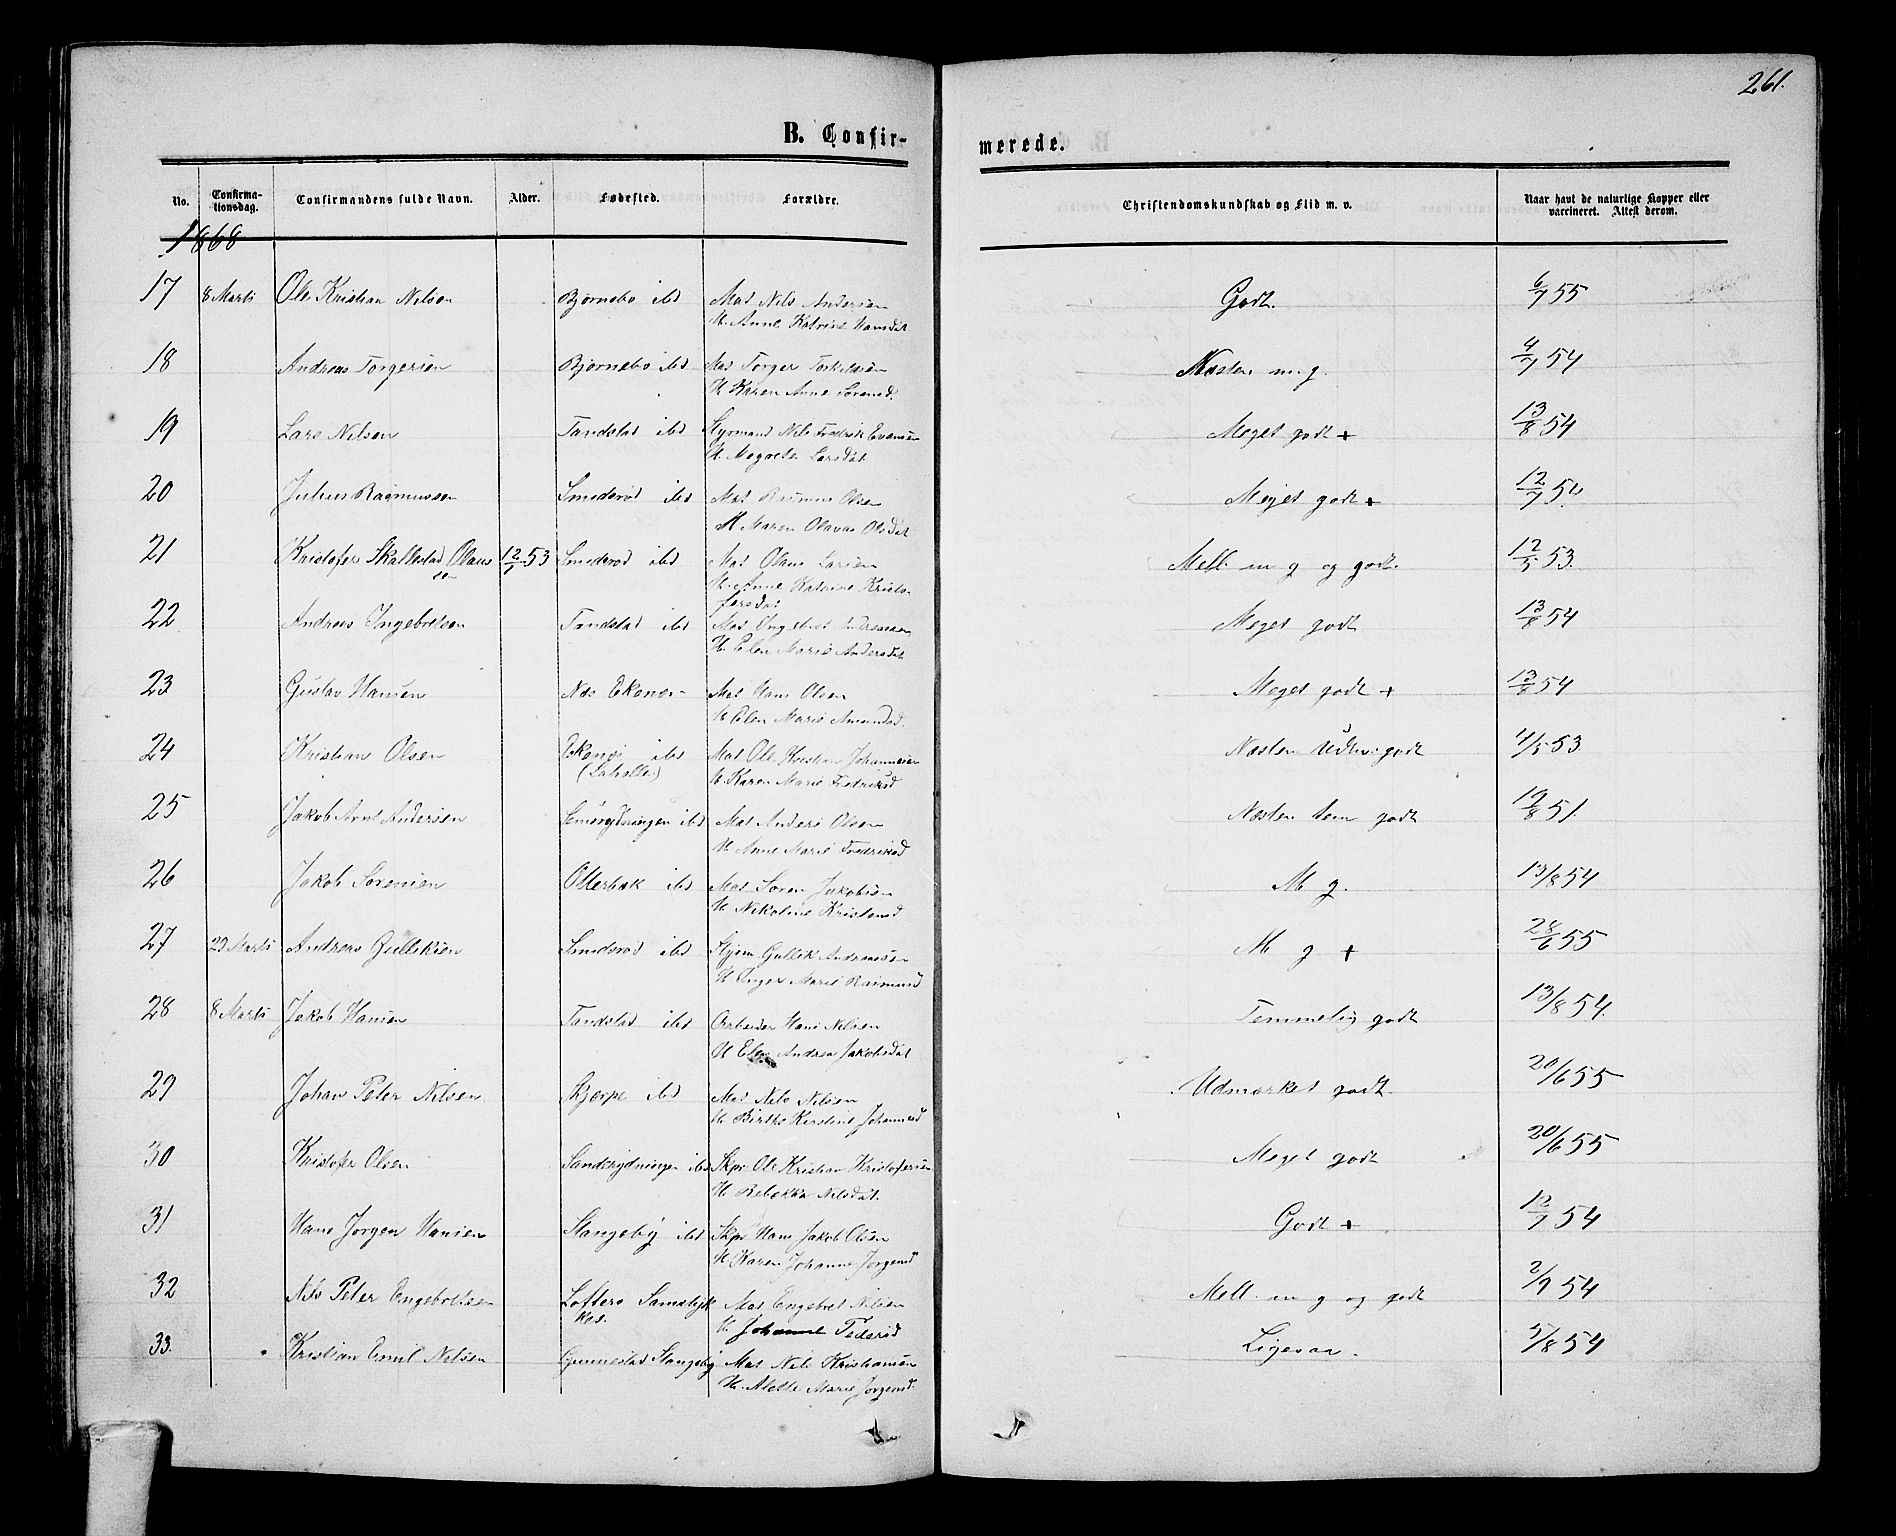 261.
B. Confirmerede.
No. Confirmationsdag. Confirmandens fulde Navn. Alder. Fødested. Forældre. Christendomskundskab og Flid m. v. Naar havt de naturlige Kopper eller vaccineret. Attest derom.
1868
17 8 Marts Ole Kristian Nilsen Bjørnebo ibd Mat Nils Andersen Godt. 6/7 55
H. Anne Katrine Hansdat
18 Andreas Torgersen Bjørnebo ibd Mat Torger Torkildsen Næsten m. g. 4/7 54
H Karen Anne Sørensd.
19 Lars Nilsen Tandstad ibd Styrmand Nils Fredrik Evensen Meget godt + 13/8 54
H. Magrete Larsdat
20 Julius Rasmussen Smederød ibd Mat Rasmus Olsen Meget godt + 12/7 54.
H Maren Olava Olsdat
21 Kristofer Skallestad Olaus 12/1 53 Smederød ibd Mat Olaus Larsen Mell. m g og godt. 12/5 53.
sen H. Anne Katrine Kristo-
fersdat
22 Andreas Ingebretsen Tandstad ibd Mat Ingebret Andreassen Meget godt 13/8 54
H. Elen Marie Andersdat
23 Gustav Hansen Næs Ekenes Mat Hans Olsen Meget godt + 13/8 54
H Elen Marie Amundsd.
24 Kristian Olsen Ekenes ibd Mat Ole Kristian Johannesen Næsten Udm. godt 4/5 53.
H Karen Marie Fredriksd
25 Jakob Arnt Andersen ibd Mat Anders Olsen Næsten tem godt 19/8 51.
H. Anne Marie Fredriksd
26 Jakob Sørensen Oterbæk ibd Mat Søren Jakobsen M g. 13/8 54
H Nikoline Kristensd
27 29 Marts Andreas Gulliksen Smederød ibd Styrm Gullik Andreassen M g + 28/6 55
H Inger Marie Rasmusd
28 8 Marts Jakob Hansen Tandstad ibd Arbeider Hans Nilsen Temmelig godt 13/8 54.
H Elen Andrea Jakobsdat
29 Johan Peter Nilsen Kjærpe ibd Mat Nils Nilsen Udmærket godt. 20/6 55
H Birthe Kirstine Johannesd
30 Kristofer Olsen Sanderydningen ibd Skpr Ole Kristian Kristofersen Meget godt 20/6 55
H. Rebekka Nilsdat.
31 Hans Jørgen Hansen Stangeby ibd Skpr Hans Jakob Olsen Godt + 12/7 54
H Karen Johanne Jørgensd
32 Nils Peter Engebretsen Mat Engebret Nilsen Mell. m g og godt 2/9 54
H. Johanne Pedersd
33. Kristian Emil Nilsen Gunnestad Stangeby Mat Nils Kristiansen Ligesaa. 5/8 54
H. Alette Marie Jørgensd.